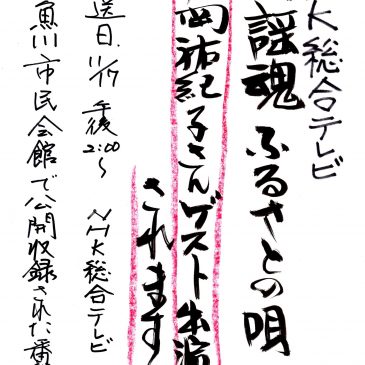 K総合テレビ
謡魂ふるさとの唄
岡祐紀子さんゲスト出演
されます
送日.11/17 午後2:00〜 NHK総合テレビ
魚川市民会館で公開収録された番